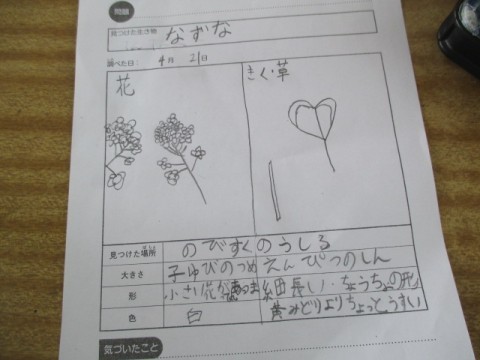 問題
見つけた生き物 なずな
調べた日: 4月 21日
花
きく・草
見つけた場所 のびすくのうしろ
大きさ 子ゆびのつめ えんぴつのしん
形 小さい花が 細長い・ちょうちょの形
色 白 みどりよりちょっとうすい
気づいたこと